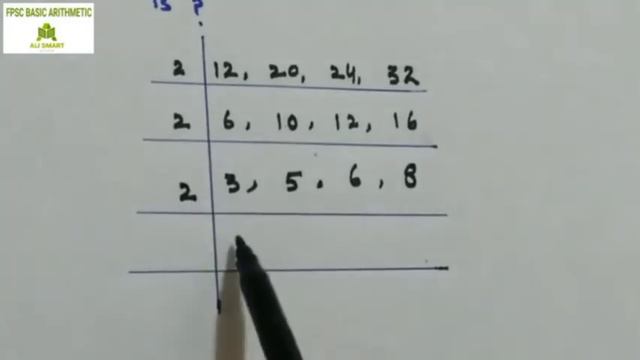 is ?
FPSC BASIC ARITHMETIC
ALI SMART
2 12, 20, 24, 32
2 6, 10, 12, 16
2 3, 5, 6, 8